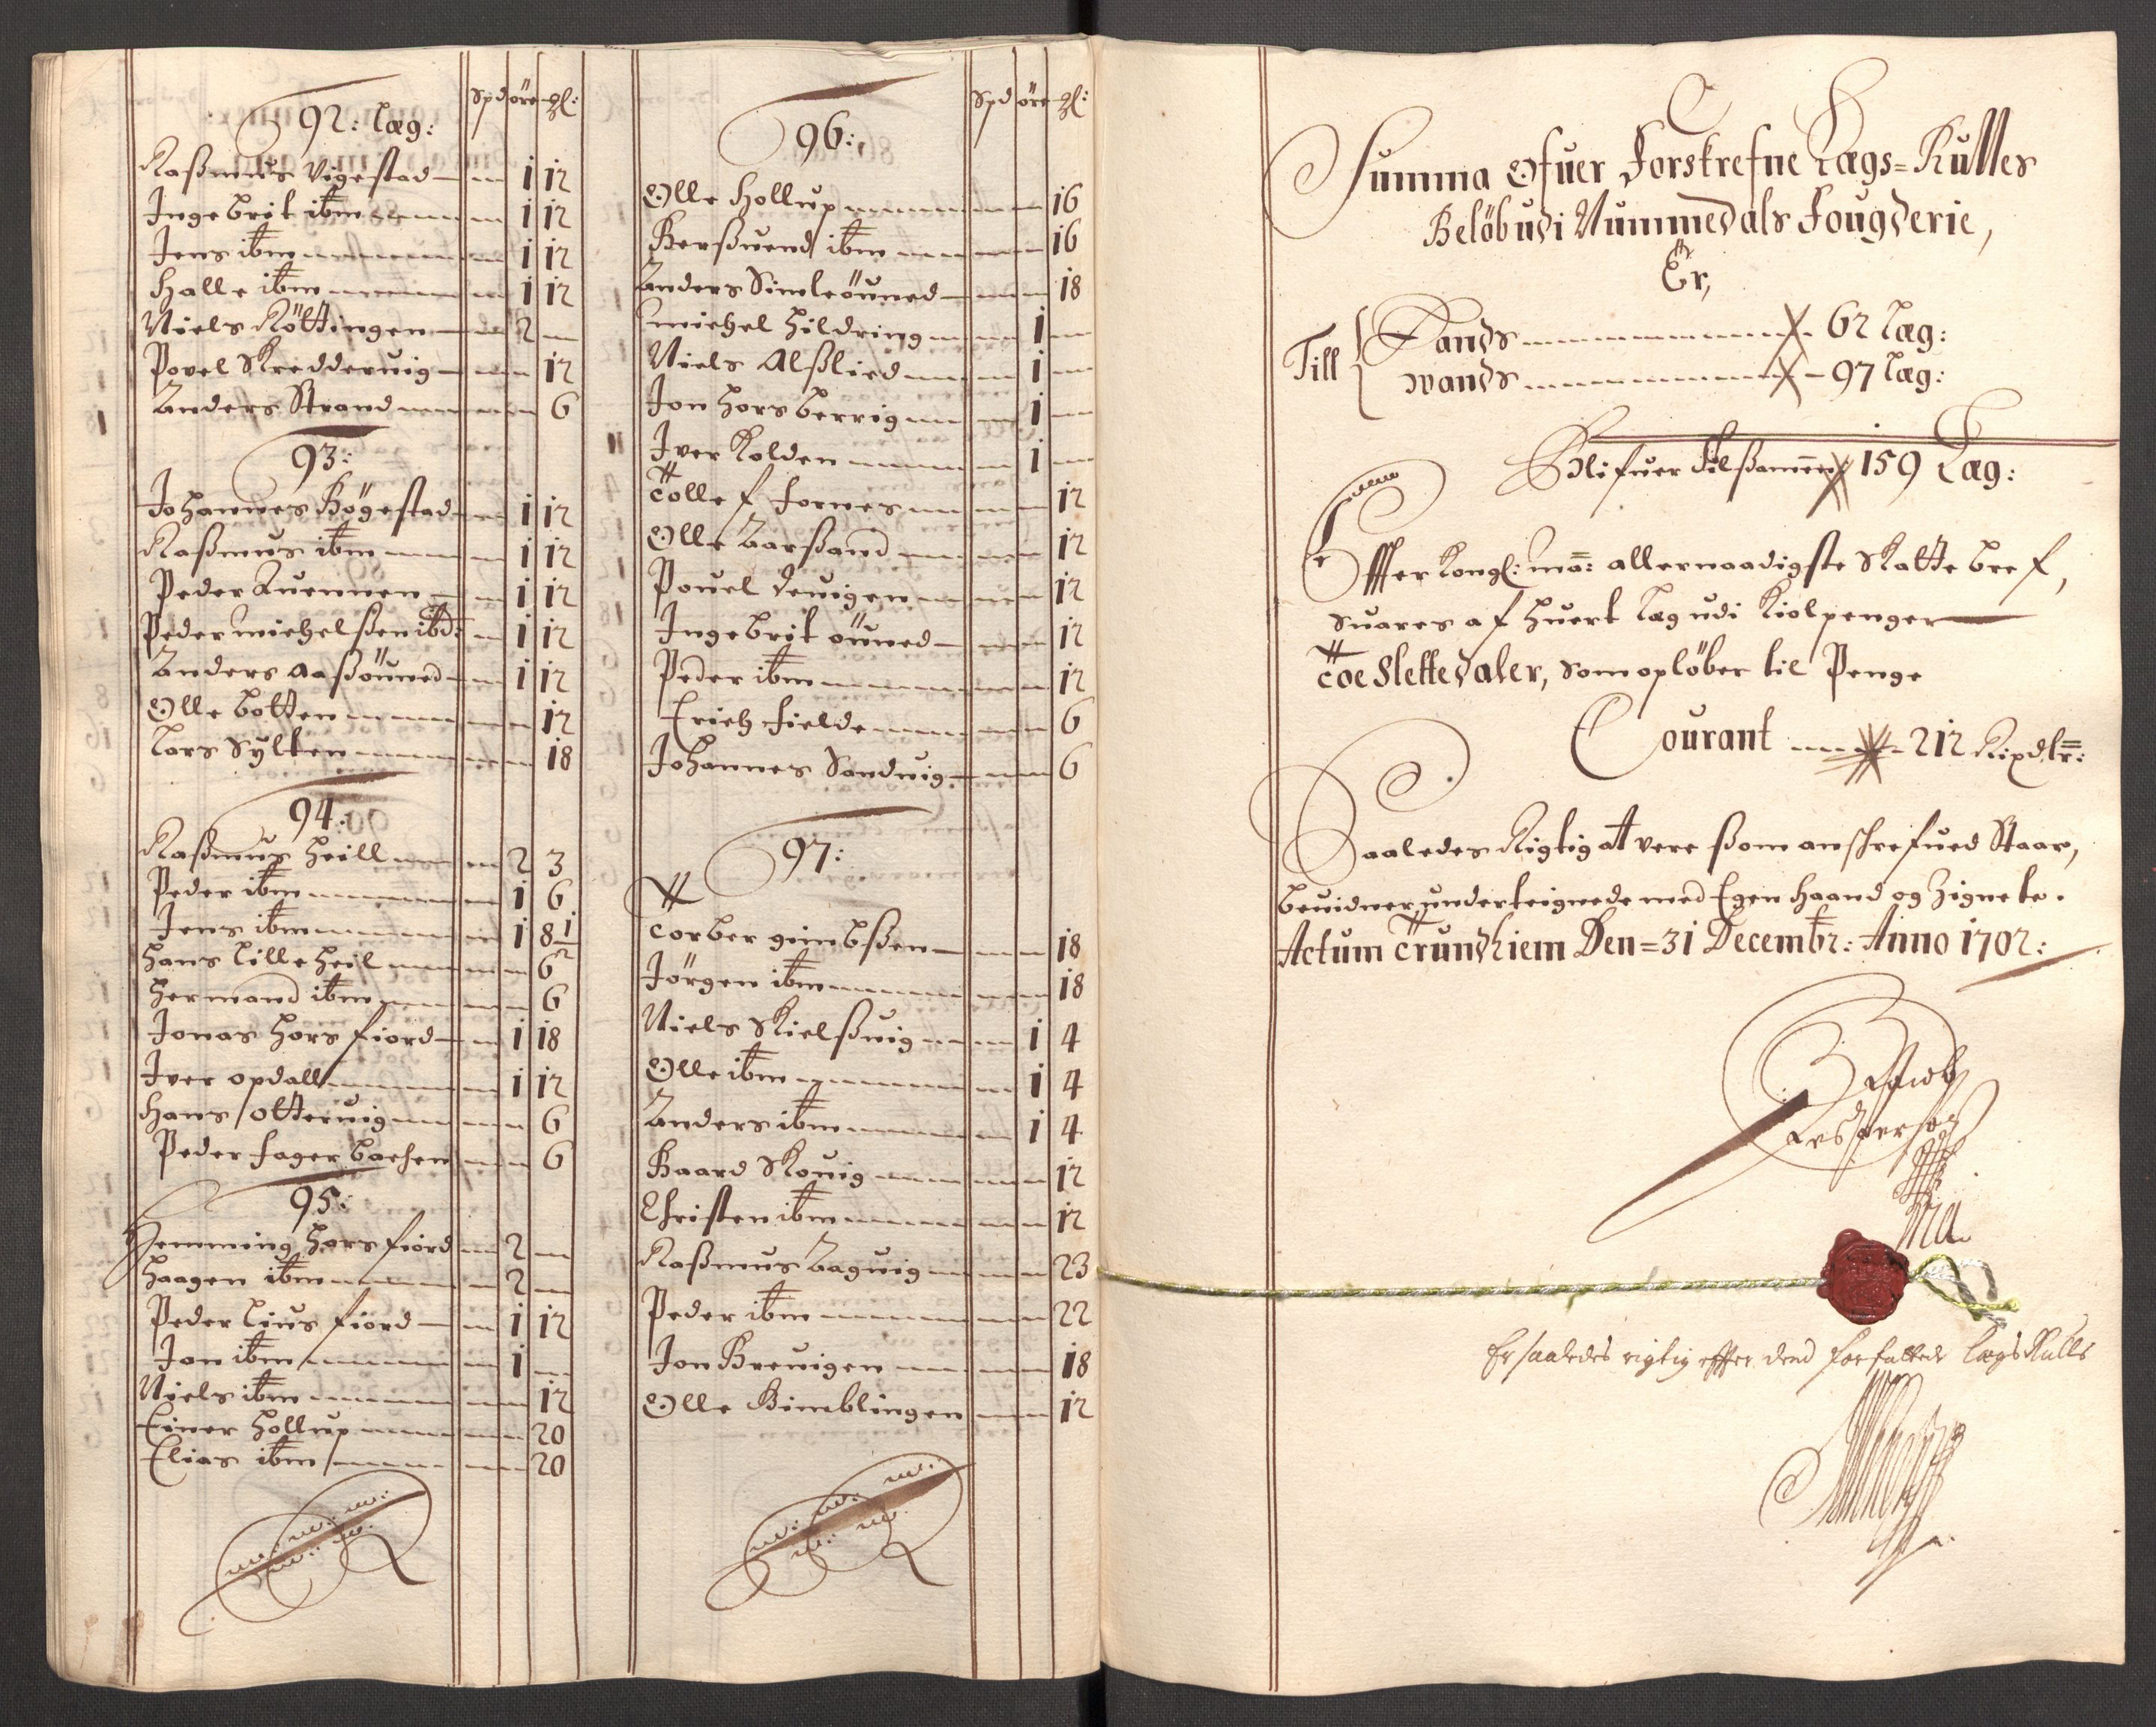 Spd öre gl:
92: Læg:
Raßmus Vigestad 1 12
Ingebrit ibm 1 12
Jens ibm 1 12
Halle ibm 1 12
Niels Röttingen 2
Povel Skreddervig 12
Anders Strand 6
93:
Johannes Bögestad 1 12
Raßmus ibm 1 12
Peder Quennen 1 12
Peder Michelßen ibd: 1 12
Anders Aaßöuned 1 12
Olle Botten 12
Lars Sylten 18
94:
Raßmus Heill 2 3
Peder ibm 1 6
Jens ibm 1 8 1/2
Hans Lille Heil 6
Hermand ibm 6
Jonas Horsfiord 1 18
Iver Opdall 1 12
Hans Ottervig 6
Peder Fagerbachen 6
95:
Hemming Horsfiord 2
Haagen ibm 2
Peder Liusfiord 1 12
Jon ibm 1
Niels ibm 12
Einer Hollup 20
Elias ibm 20
Spd öre gl:
96:
Olle Hollup 16
Berßuend ibm 16
Anders Simleöuned 18
Michel Hildring 1
Niels Alßlied 1
Jon Horsberrig 1
Iver Kolden 1
Tollef Fornes 12
Olle Aarßand 12
Pouel Deuigen 12
Ingebrit öuned 12
Peder ibm 12
Erich Fielde 6
Johannes Sandvig 6
97:
Torber gimbßen 18
Jörgen ibm 18
Niels Skielßvig 1 4
Olle ibm 1 4
Anders ibm 1 4
Baard Skovig 12
Christen ibm 12
Raßmus Aagvig 23
Peder ibm 22
Jon Brevigen 18
Olle Bimblingen 12
Summa Ofuer Forskrefne Lægs=Rulles
Belöb udi Nummedals Fougderie,
Er,
Till Lands 62 Læg:
Wands 97 Læg:
Blifuer Tilßamen 159 Læg:
Effter Kongl: Ma: allernaadigste Skatte bref,
Suares af huert Læg udi Kiolpenger
Toe Slettedaler, som oplöber til Penge
Courant 212 Rixdlr:
Saaledes Rigtig at vere ßom anskrefued Staar,
bevidner underteignede med Egen Haand og Zignete.
Actum Trundhiem Den=31 Decembr: Anno 1702:
Er saaledes rigtig effter dend forfattede Lægs Rulle